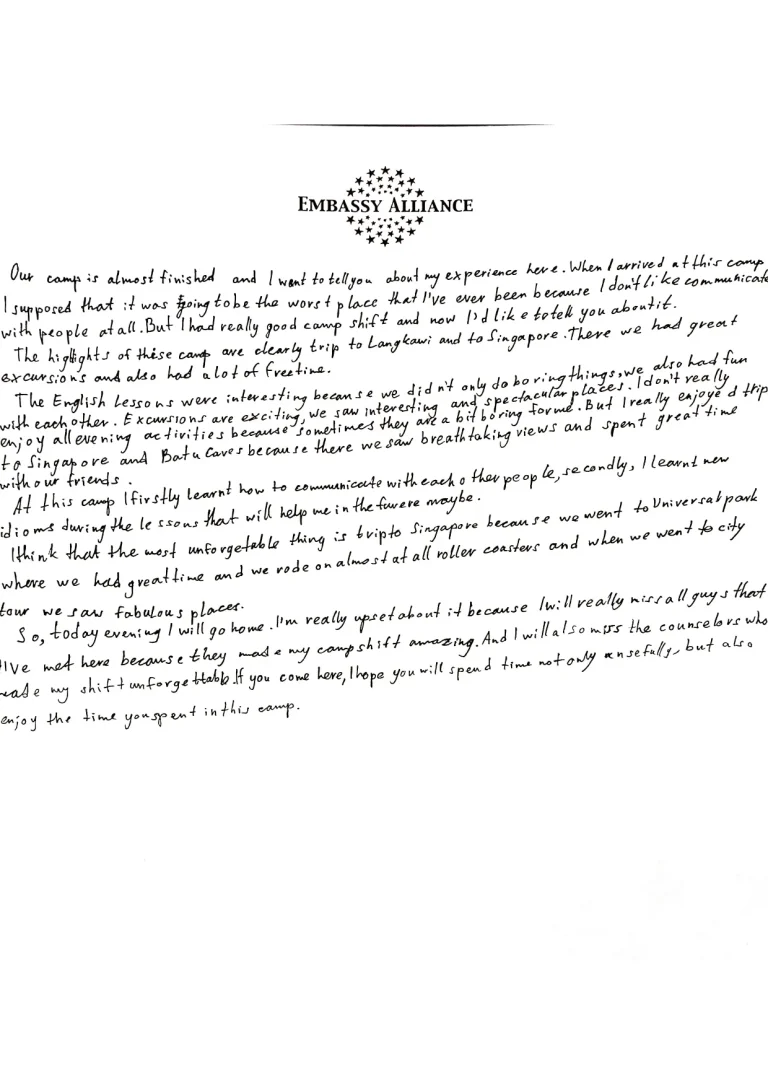 EMBASSY ALLIANCE
Our camp is almost finished and I want to tell you about my experience here. When I arrived at this camp
I supposed that it was going to be the worst place that I've ever been because I don't like communicate
with people at all. But I had really good camp shift and now I'd like to tell you about it.
The highlights of these camp are clearly trip to Langkawi and to Singapore. There we had great
excursions and also had a lot of freetime.
The English Lessons were interesting because we didn't only do boring things, we also had fun
with each other. Excursions are exciting, we saw interesting and spectacular places. I don't really
enjoy all evening activities because sometimes they are a bit boring for me. But I really enjoyed trip
to Singapore and Batu Caves because there we saw breathtaking views and spent great time
with our friends.
At this camp I firstly learnt how to communicate with each other people, secondly, I learnt new
idioms during the lessons that will help me in the fuvere maybe.
I think that the most unforgetable thing is trip to Singapore because we went to Universal park
where we had great time and we rode on almost at all roller coasters and when we went to city
tour we saw fabulous places.
So, today evening I will go home. I'm really upset about it because I will really miss all guys that
I've met here because they made my camp shift amazing. And I will also miss the counselors who
made my shift unforgettable. If you come here, I hope you will spend time not only usefully, but also
enjoy the time you spent in this camp.